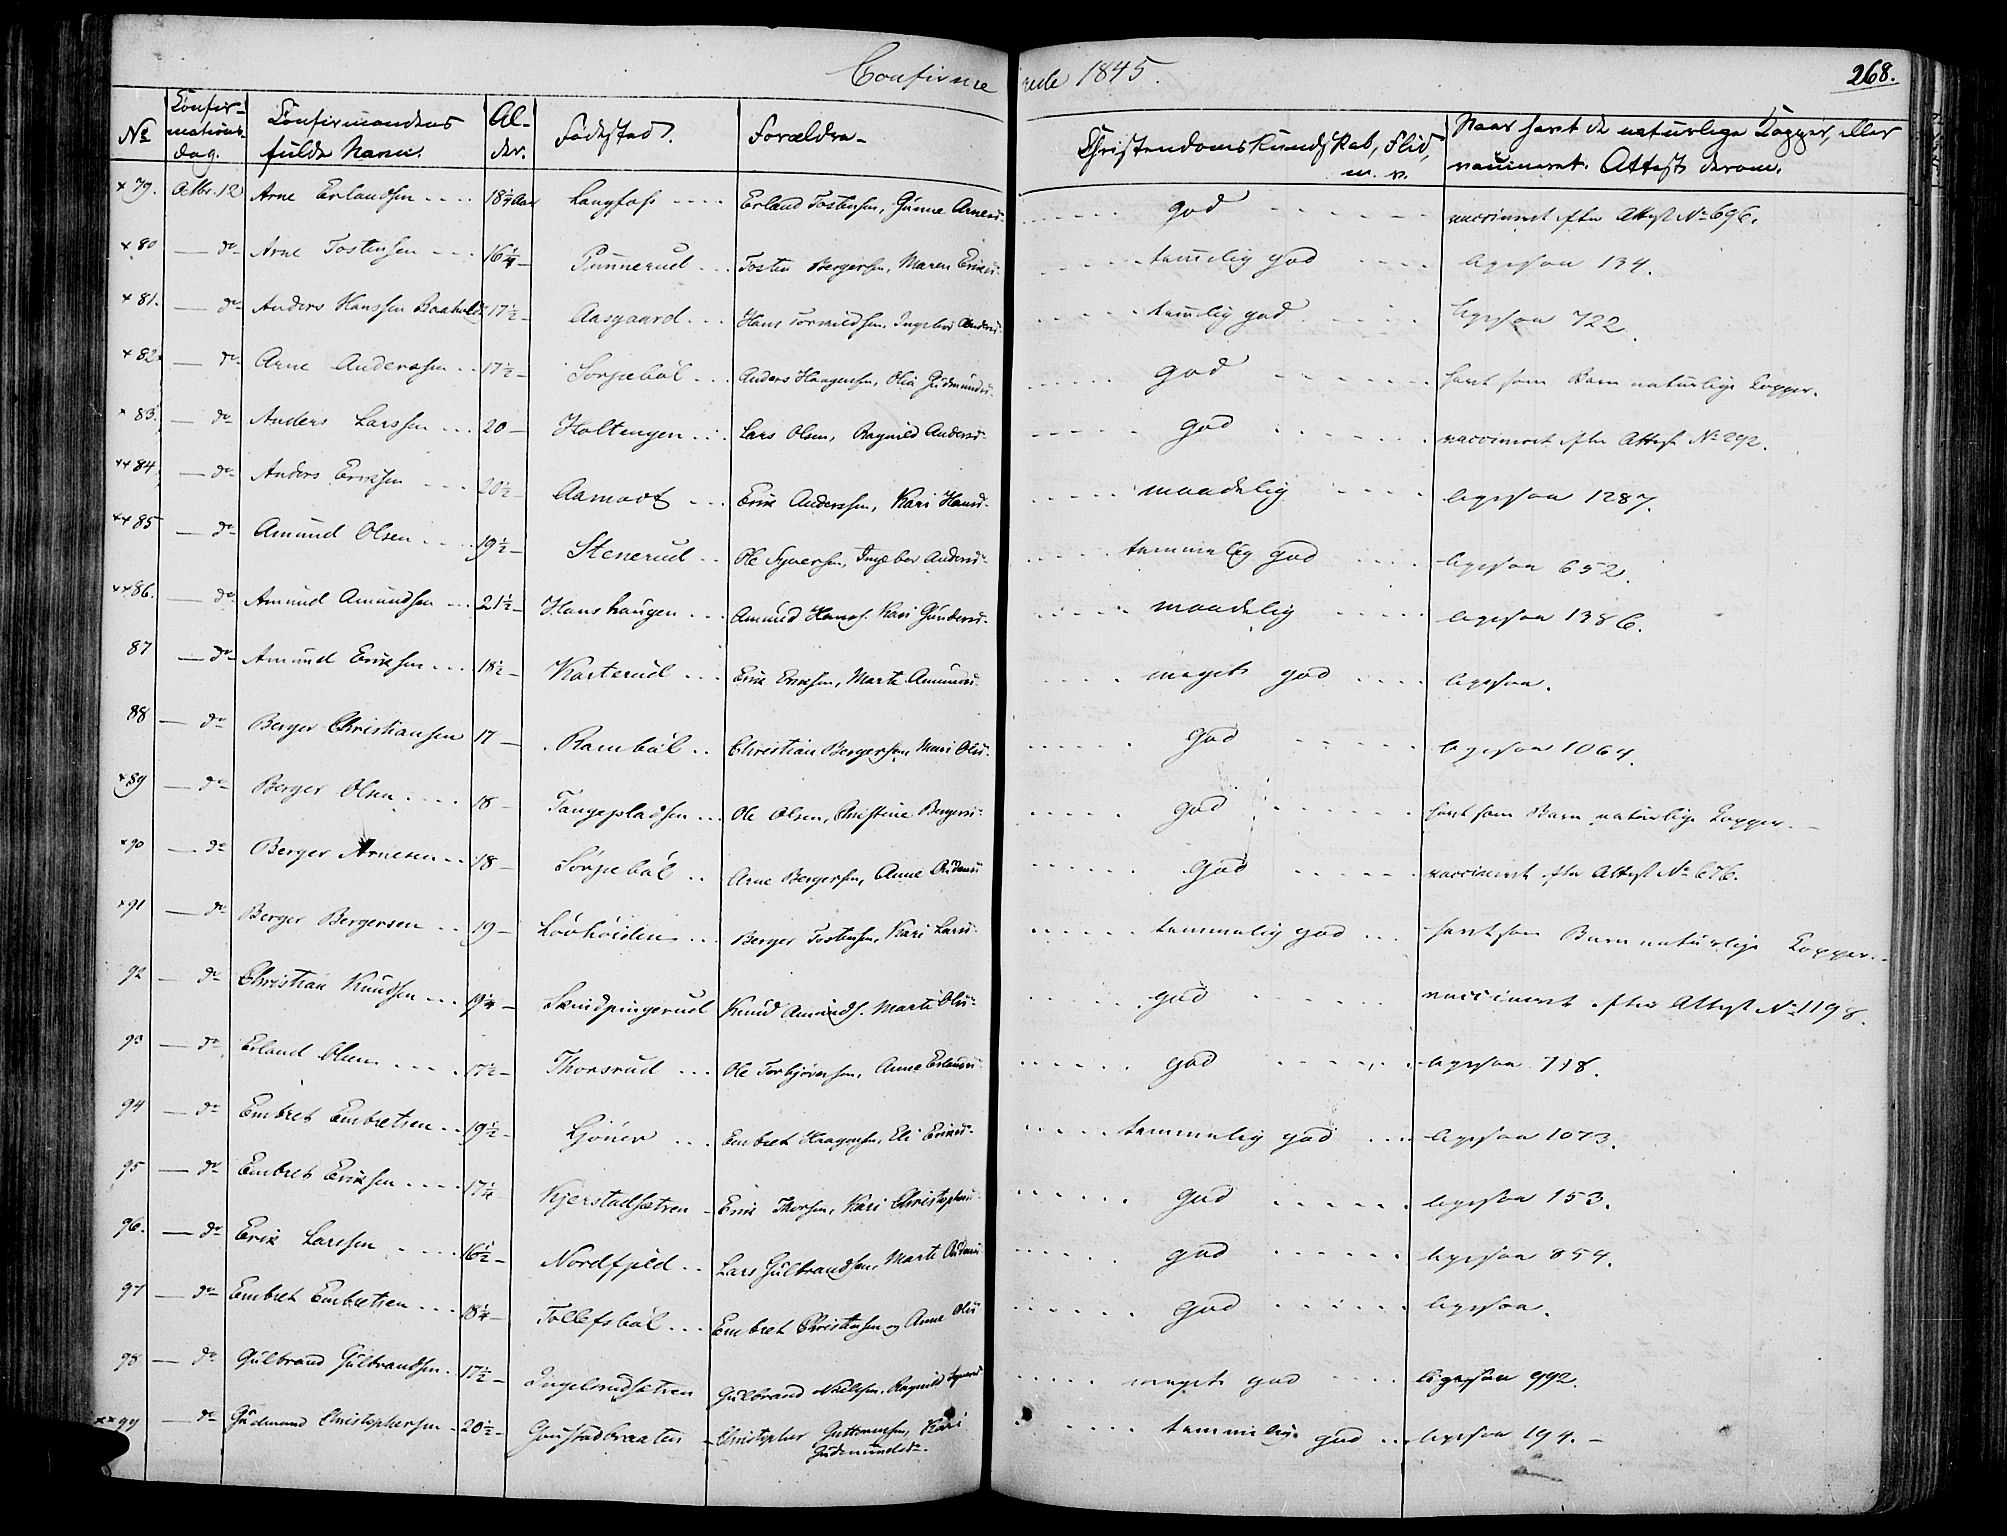 Confirmerede 1845. 268.
No Confirmations dag. Confirmandens fulde Navn. Alder. Fødested. Forældre Christendoms Kundskab, Flid, m. v. Naar havt de naturlige Kopper, eller vaccineret. Attest derom.
× 79. Octbr. 12 Arne Erlandsen Langfos Erland Tostensen, Gunne Arnesd. god vaccineret efter Attest No 696.
× 80 — do Arne Tostensen 16¼ — Tunnerud Tosten Bergersen, Maren Eriksd. tem̄elig god ligesaa 134.
× 81. — do Anders Hanssen 17½ — Aasgaard Hans Ingebor Andersd. tem̄elig god ligesaa 722.
× 82. — do Arne Anderssen 17½ — Sorpebøl Anders Haagensen, Olia Gudmundsd. god havt som Barn naturlige Kopper.
× 83. — do Anders Larssen 20 — Holtengen Lars Olsen, Ragnild Andersd. god vaccineret efter Attest No 292.
×× 84. — do Anders Eriksen 20½ — Aamodt Erik Anderssen, Kari Hansd. maadelig ligesaa 1287.
×× 85 — do Amund Olsen 19½ — Stenerud Ole Syversen, Ingebor Andersd. temmelig god ligesaa 652.
×× 86. — do Amund Amundsen 21½ — Hanshaugen Amund Hans. Kari Gundersd. maadelig ligesaa 1386.
87 — do Amund Eriksen 18½ — Karterud Erik Eriksen, Marte Amundsd. meget god ligesaa.
88 — do Berger Christiansen 17 — Rambøl Christian Bergersen, Mari Olsd. god ligesaa 1064.
× 89 — do Berger Olsen 18 — Tangepladsen Ole Olsen, Christine Bergersd. god havt som Barn naturlige Kopper. —
× 90 — do Berger Arnesen 18 — Sorpebøl Arne Bergersen, Anne god vaccineret efter Attest No 676.
× 91 — do Berger Bergersen 19 — Løvhøiden Berger Tostensen, Kari Larsd. temmelig god havt som Barn naturlige Kopper. —
92 — do Christian Knudsen 19¼ — Knud Amunds. Marte Olsd. god vaccineret efter Attest No 1198.
93 — do Erland Olsen 17½ — Thorsrud Ole Torbjørnsen, Anne Erlandsd. god ligesaa 718.
94 — do Embret Embretsen 19½ — Gjøner Embret Haagensen, Eli Eriksd. temmelig god ligesaa 1073.
95 — do Embret Eriksen 17¼ Kjerstadsætren Erik Thorsen, Kari Christophersd. god ligesaa 153.
96. — do Erik Larssen 16½ — Nordfjeld Lars Gulbrandsen, Marte god ligesaa 854.
97 — do Embret Embretsen 18¼ — Tollefsbøl Embret Christensen og Anne Olsd. god ligesaa.
98 — do Gulbrand Gulbrandsen 17½ — Ingelsrudsætren Gulbrand Nielssen, Ragnild meget god ligesaa 992.
×× 99 — do Gudmund Christophersen 20½ — Gaustadbraaten Christopher Guttormsen, Kari temmelig god ligesaa 194. —
Gudmundsd.